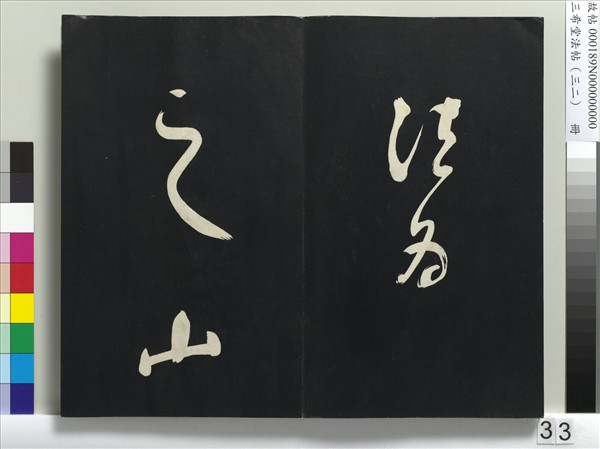 法為
之山
故帖 000189N000000000
三希堂法帖（三二） 冊
33